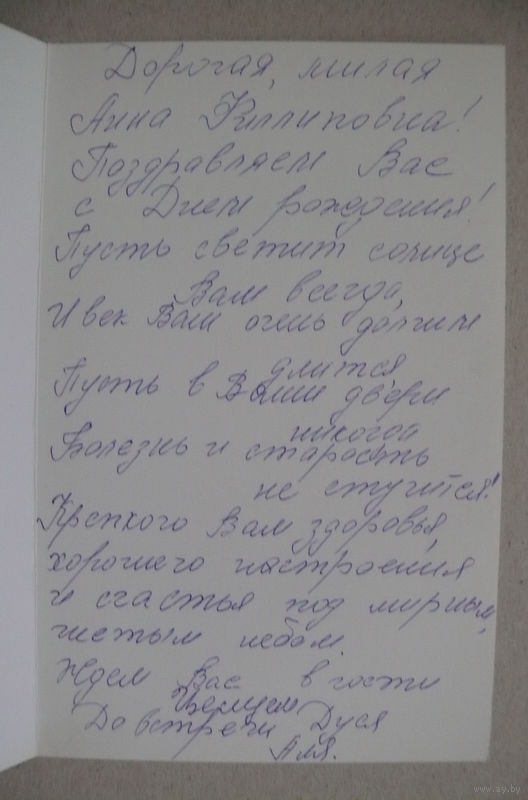 Дорогая, милая
Анна Филиповна!
Поздравляем Вас
с Днем рождения!
Пусть светит солнце
Вам всегда,
И век Ваш очень долгим
длится,
Пусть в Ваши двери
никогда
Болезнь и старость
не стучится!
Крепкого Вам здоровья,
хорошего настроения
и счастья под мирным,
чистым небом.
Ждем Вас в гости
До встречи Дуся
Аля.
www.ay.by